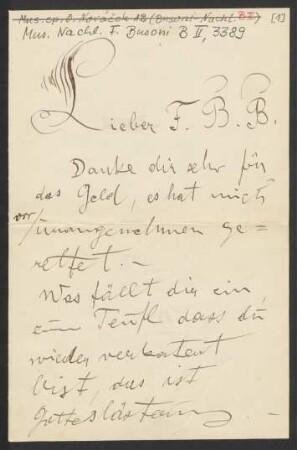 Mus. ep. O. Nováček 18 (Busoni-Nachl. B II) [1]
Mus. Nachl. F. Busoni B II, 3389
Lieber F. B. B.
Danke dir sehr für
das Geld, es hat mich
vor/unangenehmen ge=
rettet.–
Was fällt dir ein
zum Teufl dass du
wieder verkatert
bist, das ist
Gotteslästerung –